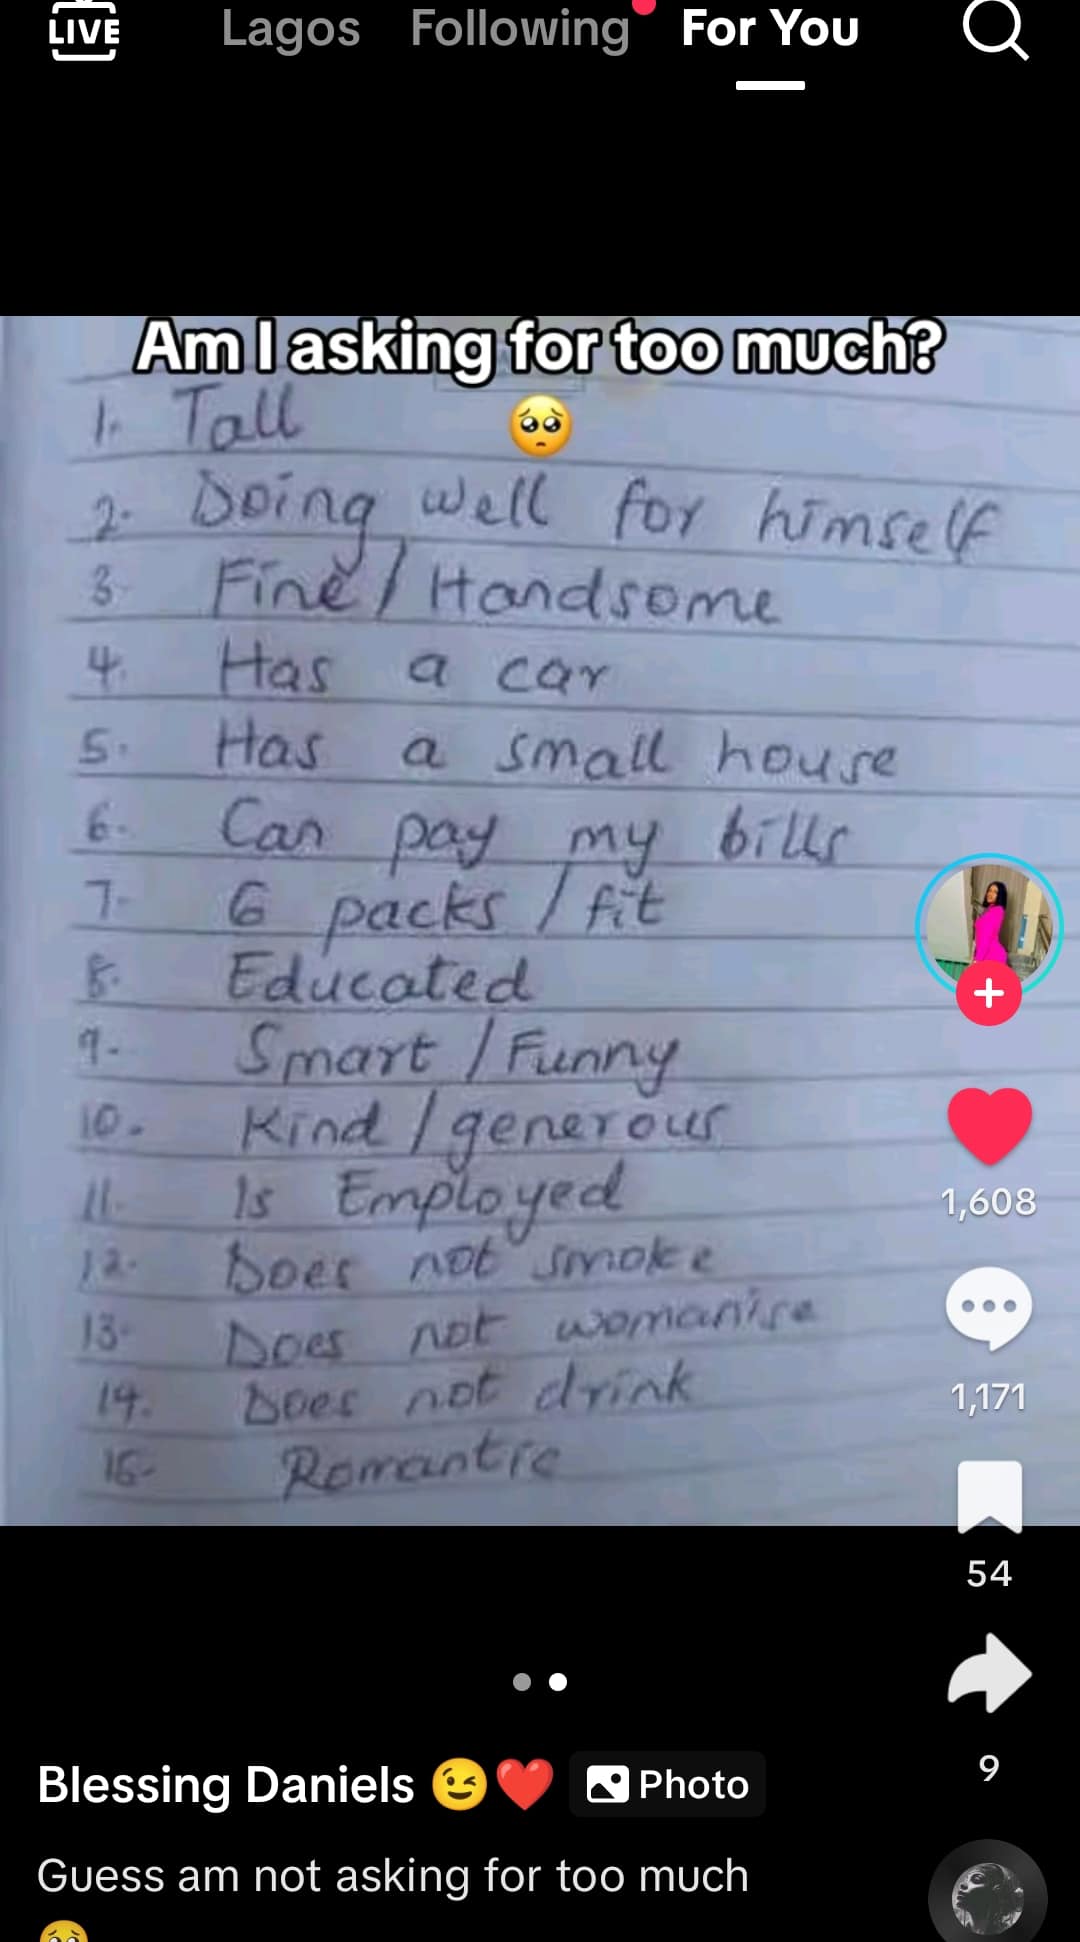 LIVE
Lagos Following For You
Am I asking for too much?
🥺
1. Tall
2. Doing well for himself
3. Fine / Handsome
4. Has a car
5. Has a small house
6. Can pay my bills
7. 6 packs / fit
8. Educated
9. Smart / Funny
10. Kind / generous
11. Is Employed
12. Does not smoke
13. Does not womanise
14. Does not drink
15. Romantic
1,608
1,171
54
9
Blessing Daniels 😉❤️ Photo
Guess am not asking for too much
🥺